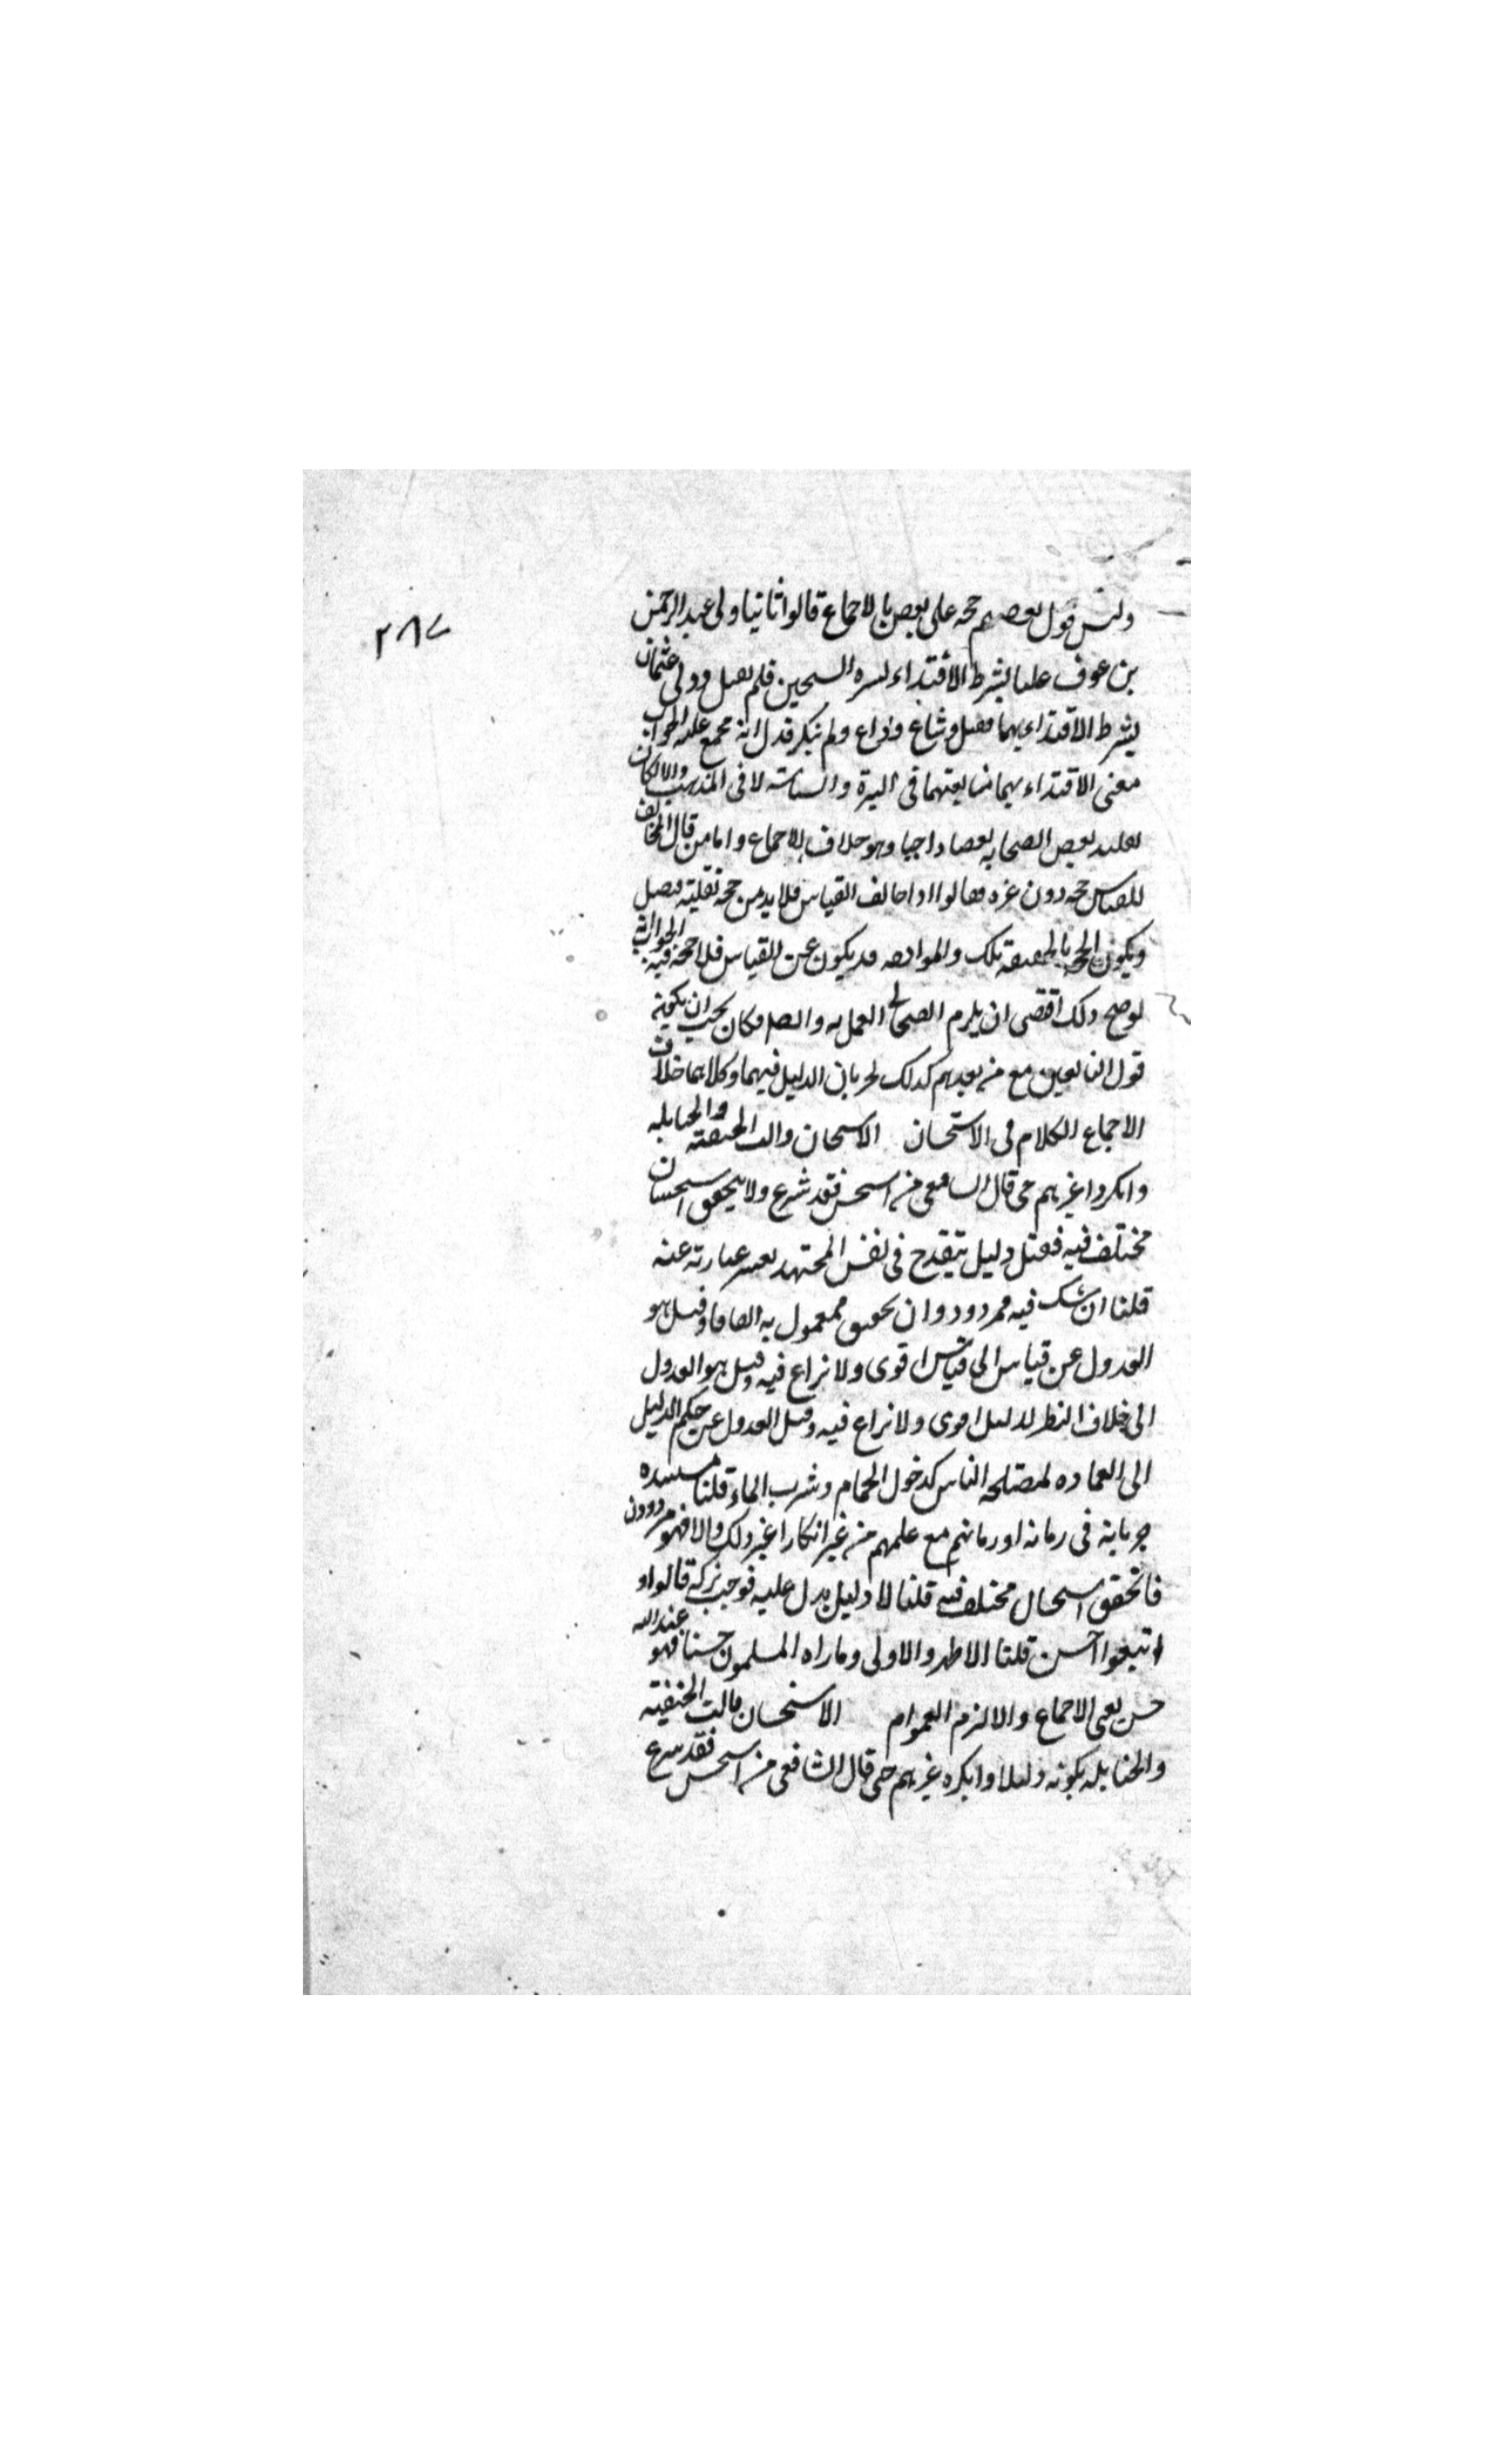 ٢٨٧
وليس قول بعضهم حجة على بعض بالاجماع قالوا ثانيا ولى عبد الرحمن
بن عوف عليا بشرط الاقتداء بسيرة الشيخين فلم يقبل وولى عثمان
بشرط الاقتداء بهما فقبل وشاع وذاع ولم ينكر فدل انه مجمع عليه الجواب
معنى الاقتداء بهما متابعتهما في السيرة والسياسة لا في المذهب والا لكان
تقليد بعض الصحابة بعضا واجبا وهو خلاف الاجماع واما من قال المخالف
للقياس حجة دون غيره فقالوا اذا خالف القياس فلا بد من حجة نقلية فيقبل
ويكون الحجة بالحقيقة تلك والموافقة قد يكون عن القياس فلا حجة فيه الجواب انه
لو صح ذلك اقتضى ان يلزم الصحابي العمل به وايضا فكان يجب ان يكون
قول التابعين مع من بعدهم كذلك لجريان الدليل فيهما وكلاهما خلاف
الاجماع الكلام في الاستحسان الاستحسان قالت الحنفية والحنابلة
وانكروا غيرهم حتى قال الشافعي من استحسن فقد شرع ولا يتحقق استحسان
مختلف فيه فقيل دليل ينقدح في نفس المجتهد تعسر عبارته عنه
قلنا ان شك فيه فمردود وان تحقق فمعمول به اتفاقا وقيل هو
العدول عن قياس الى قياس اقوى ولا نزاع فيه وقيل هو العدول
الى خلاف النظر لدليل اقوى ولا نزاع فيه وقيل العدول عن حكم الدليل
الى العادة لمصلحة الناس كدخول الحمام وشرب الماء قلنا مستنده
جريانه في زمانه او زمانهم مع علمهم من غير انكار او غير ذلك والا فهو مردود
فان تحقق استحسان مختلف فيه قلنا لا دليل يدل عليه فوجب تركه قالوا و
اتبعوا احسن قلنا الاظهر والاولى وما راه المسلمون حسنا فهو عند الله
حسن يعني الاجماع والا لزم العوام الاستحسان قالت الحنفية
والحنابلة بكونه دليلا وانكره غيرهم حتى قال الشافعي من استحسن فقد شرع